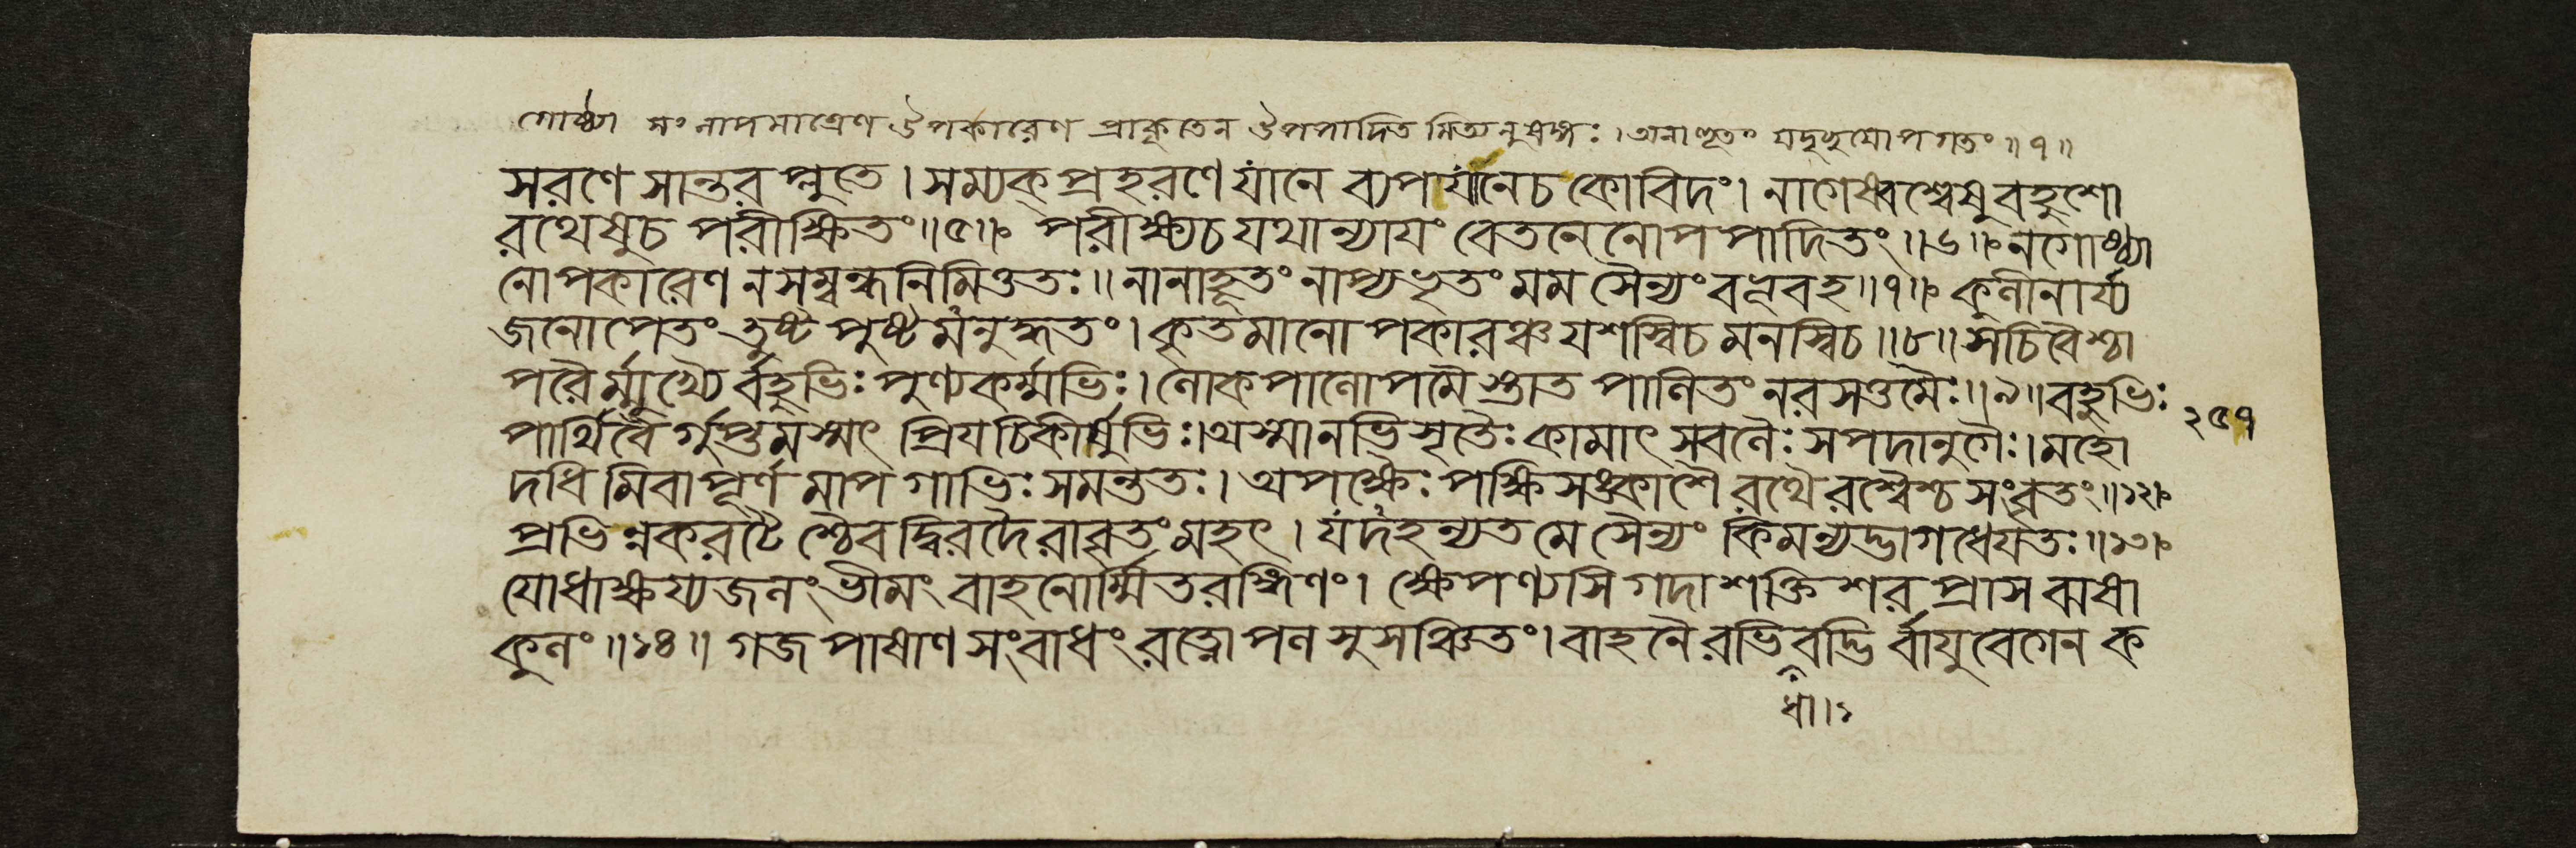 গোষ্ঠ্যা সংলাপমাত্রেণ উপকারেণ প্রাক্কৃতেন উপপাদিত মিত্যনুষঙ্গঃ। অনাহূতং যদৃচ্ছযোপগতং॥৭॥
সরণে সান্তরপ্লুতে। সম্যক্প্রহরণে যানে ব্যপযানেচ কোবিদং। নাগেষ্বশ্বেষুবহুশো
রথেষুচ পরীক্ষিতং॥৫॥ পরীক্ষ্যচ যথান্যাযং বেতনেনোপপাদিতং॥৬॥ নগোষ্ঠ্যা
নোপকারেণ নসম্বন্ধনিমিত্ততঃ॥ নানাহূতং নাপ্যভৃতং মম সৈন্যং বভূবহ॥৭॥ কুলীনার্য্য
জনোপেতং তুষ্টপুষ্টমনুদ্ধতং। কৃতমানোপকারঞ্চ যশস্বিচ মনস্বিচ॥৮॥ সচিবৈশ্চা
পরৈর্ম্মুখ্যৈ র্বহুভিঃ পুণ্যকর্ম্মভিঃ। লোকপালোপমৈস্তাত পালিতং নরসত্তমৈঃ॥৯॥ বহুভিঃ
পার্থিবৈ র্গুপ্তমস্মৎ প্রিযচিকীর্ষুভিঃ। অস্মানভিসৃতৈঃ কামাৎ সবলৈঃ সপদানুগৈঃ। মহো
২৫৭
দধি মিবাপূর্ণ মাপগাভিঃ সমন্ততঃ। অপক্ষৈঃ পক্ষিসঙ্কাশৈ রথৈরশ্বৈশ্চ সংবৃতং॥১২॥
প্রভিন্নকরটৈ শ্চৈবদ্বিরদৈরাবৃতং মহৎ। যদহন্যত মে সৈন্যং কিমন্যদ্ভাগধেযতঃ॥১৩॥
যোধাক্ষয্যজলং ভীমং বাহনোর্ম্মিতরঙ্গিণং। ক্ষেপণ্যসি গদাশক্তি শরপ্রাস ঝষা
কুলং॥১৪॥ গজপাষাণ সংবাধং রত্নোপল সুসঞ্চিতং। বাহনৈ রভিবদ্ভি র্বাযুবেগেন ক
ধা।১